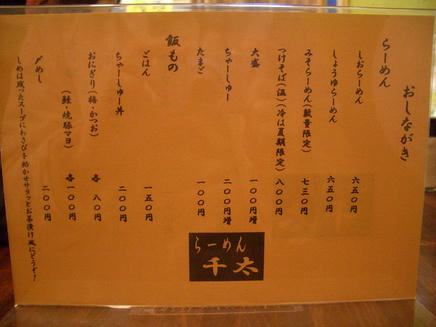 おしながき
らーめん
しおらーめん 六五〇円
しょうゆらーめん 六五〇円
みそらーめん(数量限定) 七三〇円
つけそば(温)(冷は夏期限定) 八〇〇円
大盛 一〇〇円増
ちゃーしゅー 二〇〇円増
たまご 一〇〇円
飯もの
ごはん 一五〇円
ちゃーしゅー丼 二〇〇円
おにぎり(梅・かつお) 各 八〇円
(鮭・焼豚マヨ) 各 一〇〇円
〆めし 二〇〇円
しめは残ったスープにわさびを効かせサラッとお茶漬け風にどうぞ!
らーめん
千太